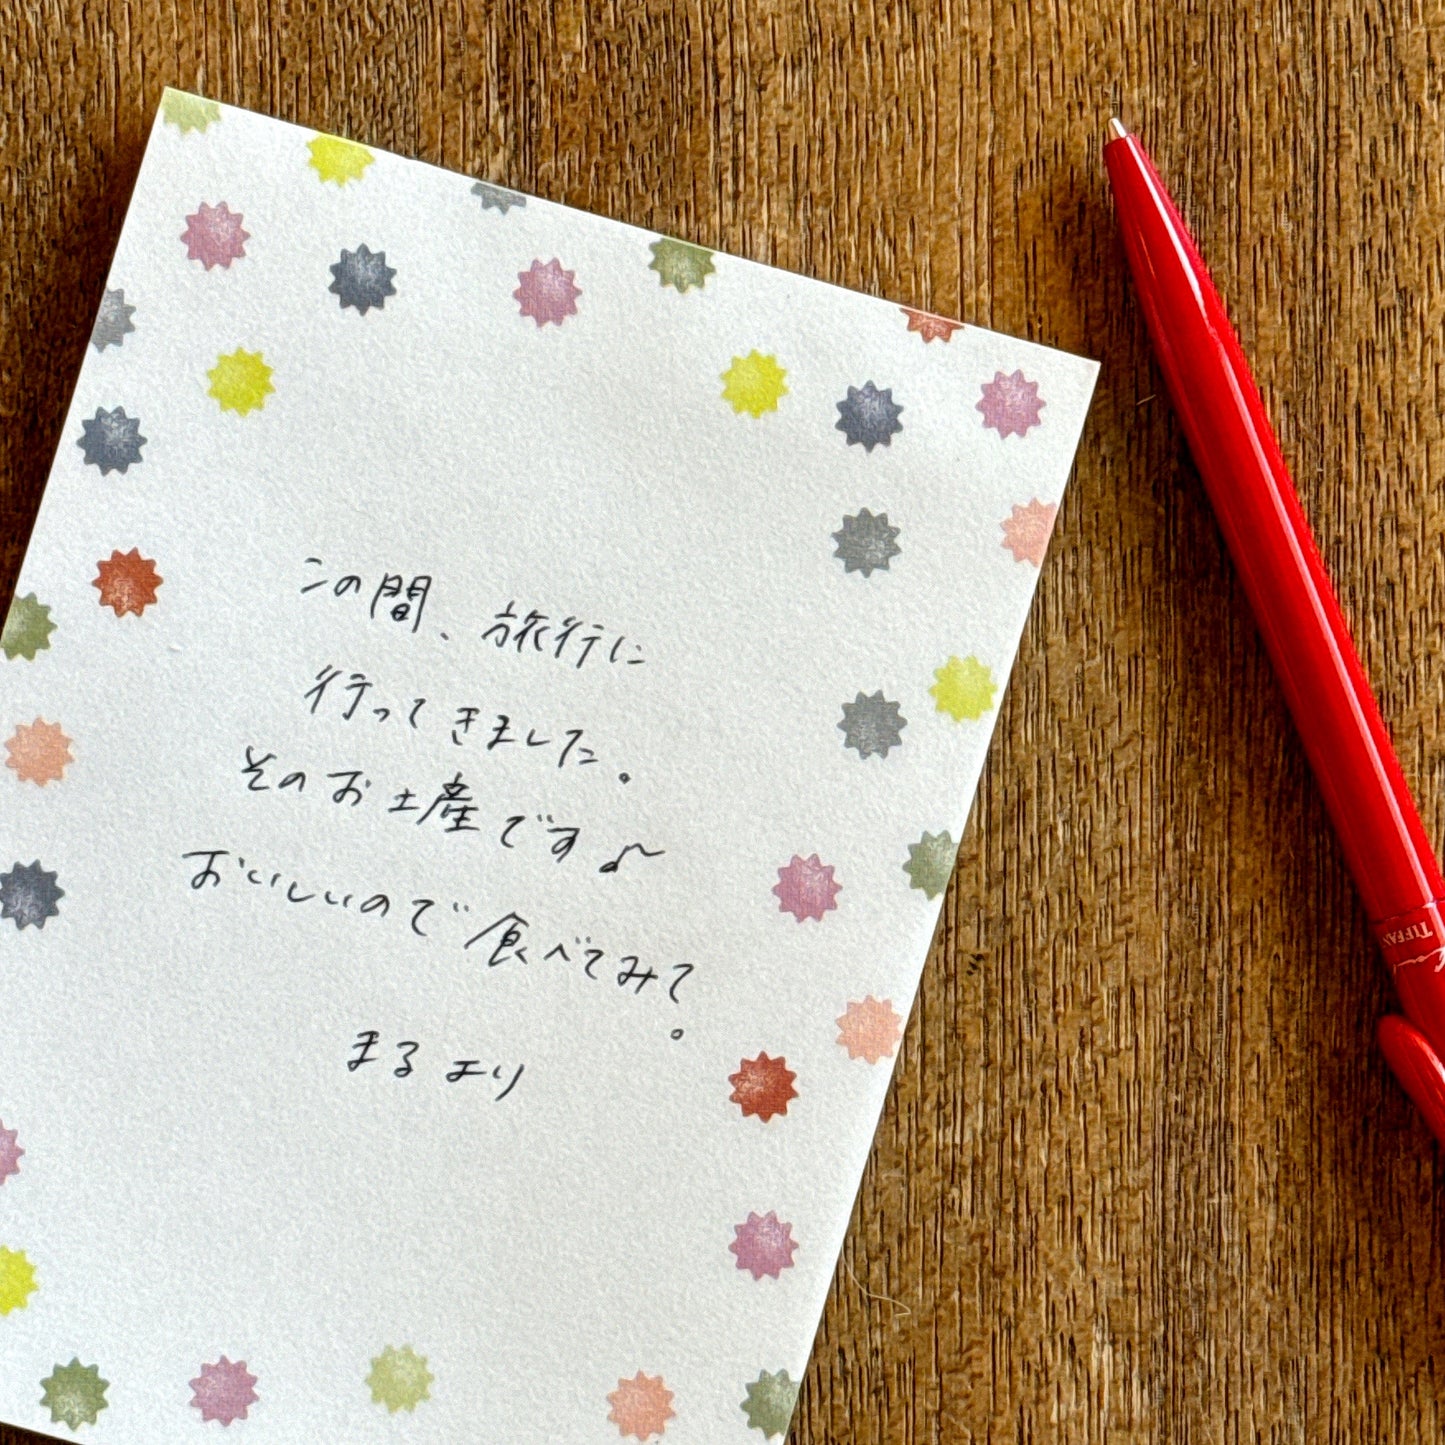 この間、旅行に
行ってきました。
そのお土産です♪
おいしいので食べてみて。
まるより
TIFFAN